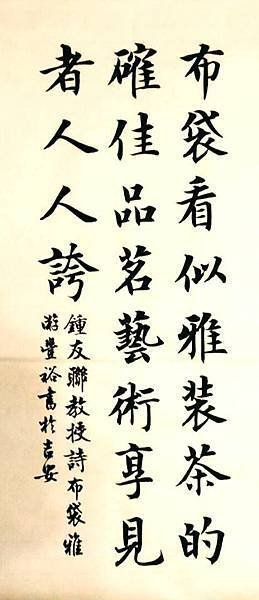 布袋看似雅装茶的
確佳品茗藝術享見
者人人誇
鍾友聯教授詩布袋雅
游豐裕書於吉安